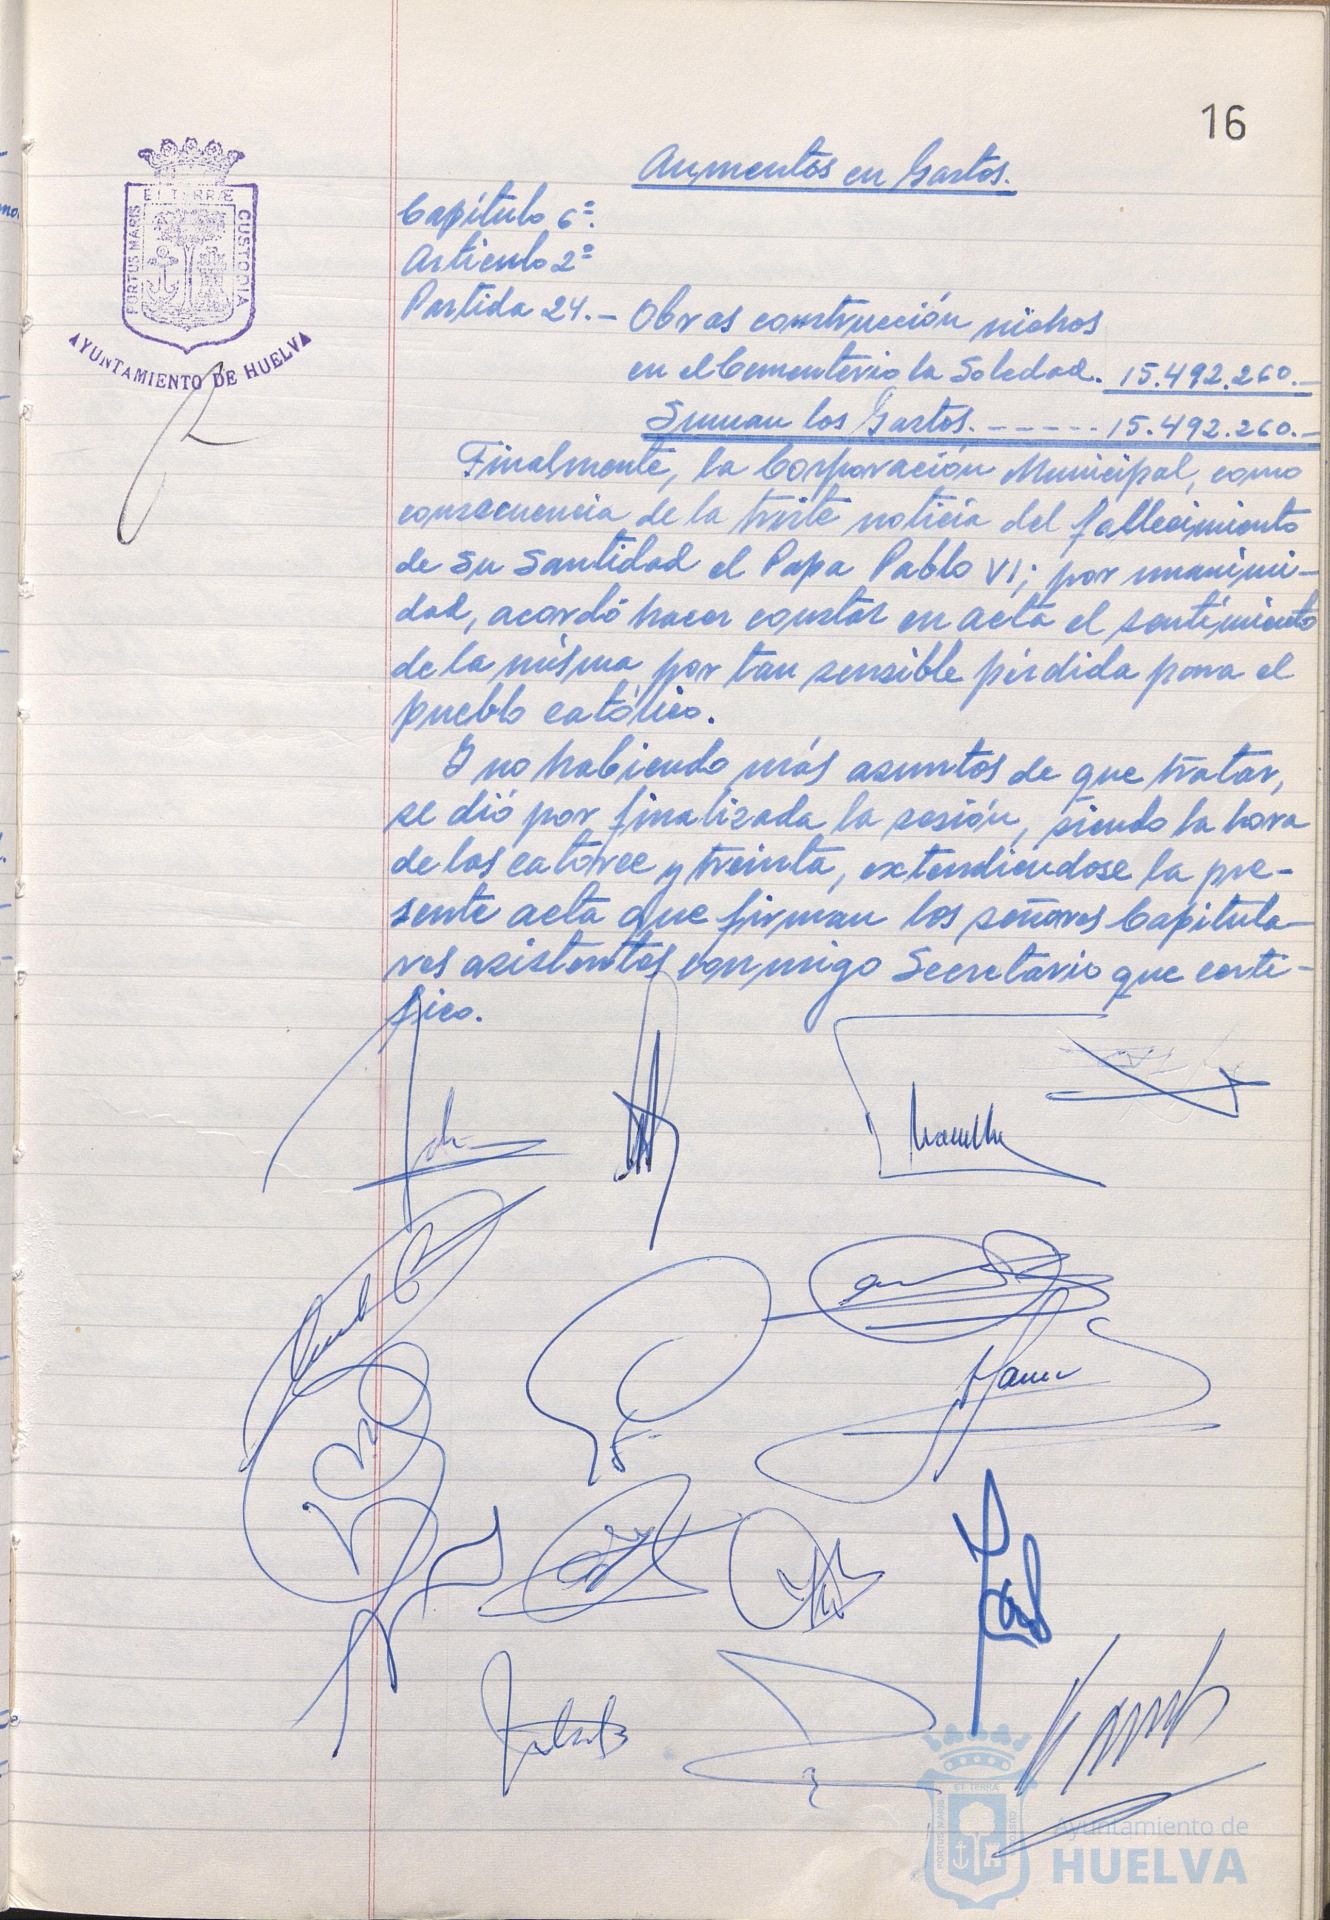 16
Aumentos en Gastos.
Capítulo 6º.
Artículo 2º
Partida 24.- Obras construcción nichos
en el Cementerio la Soledad. 15.492.260.-
Suman los Gastos. ----- 15.492.260.-
Finalmente, la Corporación Municipal, como
consecuencia de la triste noticia del fallecimiento
de Su Santidad el Papa Pablo VI; por unanimi-
dad, acordó hacer constar en acta el sentimiento
de la misma por tan sensible pérdida para el
pueblo católico.
Y no habiendo más asuntos de que tratar,
se dió por finalizada la sesión, siendo la hora
de las catorce y treinta, extendiendose la pre-
sente acta que firman los señores Capitula-
res asistentes conmigo Secretario que certi-
fico.
PORTUS MARIS ET TERRÆ CUSTODIA
AYUNTAMIENTO DE HUELVA
PORTUS MARIS ET TERRÆ CUSTODIA
Ayuntamiento de
HUELVA